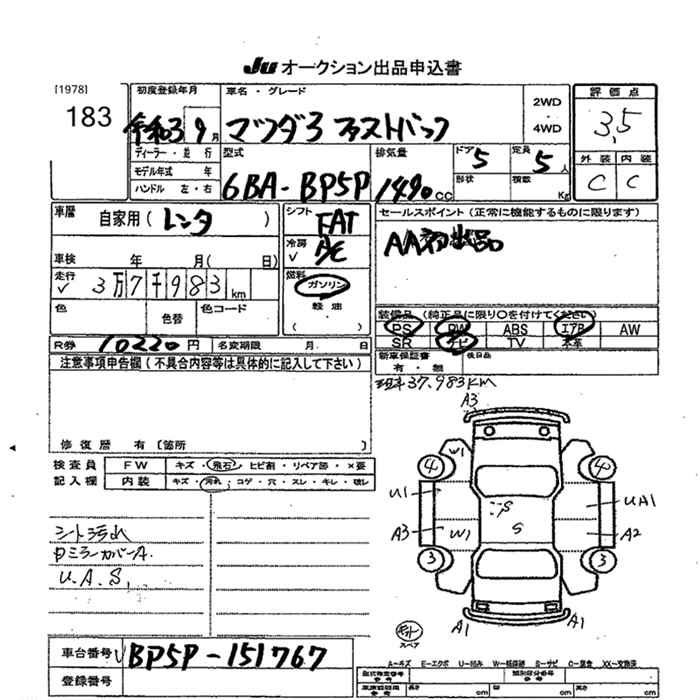 JU オークション出品申込書
[1978]
183
初度登録年月
令和3 9月
車名・グレード
マツダ3 ファストバック
2WD
・
4WD
評価点
3,5
外装 内装
C C
ディーラー・並行
モデル年式 年
ハンドル 左・右
型式
6BA-BP5P
排気量
1490cc
ドア 5
定員 5人
形状
積数 Kg
車歴
自家用(レンタ)
シフト
FAT
冷房
A/C
セールスポイント(正常に機能するものに限ります)
AA初出品
車検 年 月(日)
走行
3万7千983km
燃料
ガソリン
・
軽油
(・)
色
色替
色コード
装備品(純正品に限り○を付けてください)
PS PW ABS エアB AW
SR ナビ TV 本革
R券 10220円
名変期限 月 日
新車保証書
有・無
後日品
注意事項申告欄(不具合内容等は具体的に記入して下さい)
現車37,983km
修復歴 有〔箇所〕
検査員
記入欄
FW キズ・飛石・ヒビ割・リペア跡・×要
内装 キズ・汚れ・コゲ・穴・スレ・キレ・破レ
シート汚れ
ミラーカバーA.
U.A.S,
A3
W1
4 4
U1
S
S
UA1
A3
W1
A2
3 3
A1 A1
スペア
車台番号
BP5P-151767
登録番号
A-キズ E-エクボ U-凹み S-サビ
長さ cm 幅 cm 高さ cm